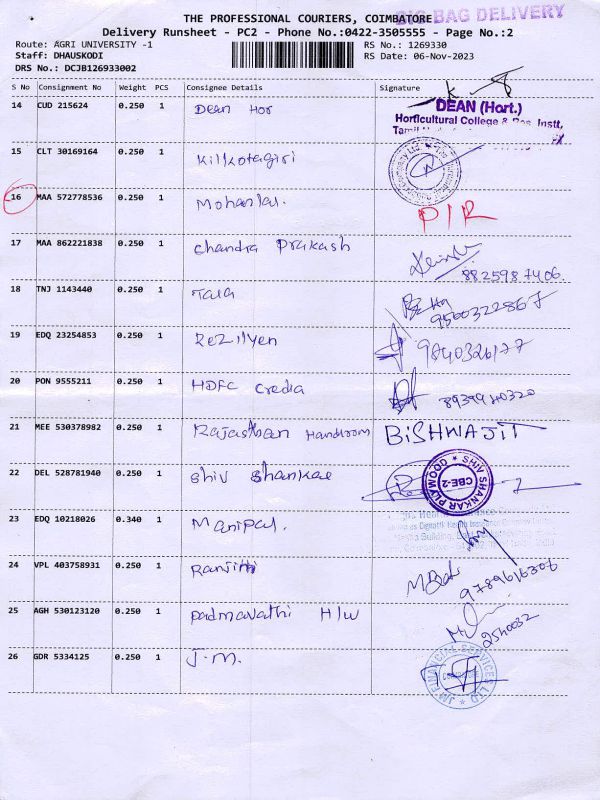 BIG BAG DELIVERY
THE PROFESSIONAL COURIERS, COIMBATORE
Delivery Runsheet - PC2 - Phone No.:0422-3505555 - Page No.:2
Route: AGRI UNIVERSITY -1 RS No.: 1269330
Staff: DHAUSKODI RS Date: 06-Nov-2023
DRS No.: DCJB126933002
S No Consignment No Weight PCS Consignee Details Signature
14 CUD 215624 0.250 1 Dean Hor
DEAN (Hort.)
Horticultural College & Res. Instt,
15 CLT 30169164 0.250 1 Killkotagiri
16 MAA 572778536 0.250 1 Mohanlal. P/R
17 MAA 862221838 0.250 1 Chandra Prakash
8825987406
18 TNJ 1143440 0.250 1 Tara
9560322867
19 EDQ 23254853 0.250 1 Rezilyen
20 PON 9555211 0.250 1 HDFC Credia
21 MEE 530378982 0.250 1 Rajasthan Handlrom BISHWAJIT
22 DEL 528781940 0.250 1 Shiv Shankar
SHIV SHANKAR PLYWOOD CBE-2
23 EDQ 10218026 0.340 1 Manipal.
24 VPL 403758931 0.250 1 Ranjith
9789616306
25 AGH 530123120 0.250 1 Padmavathi H/W
2540032
26 GDR 5334125 0.250 1 J.M.
JM FINANCIAL SERVICES LTD